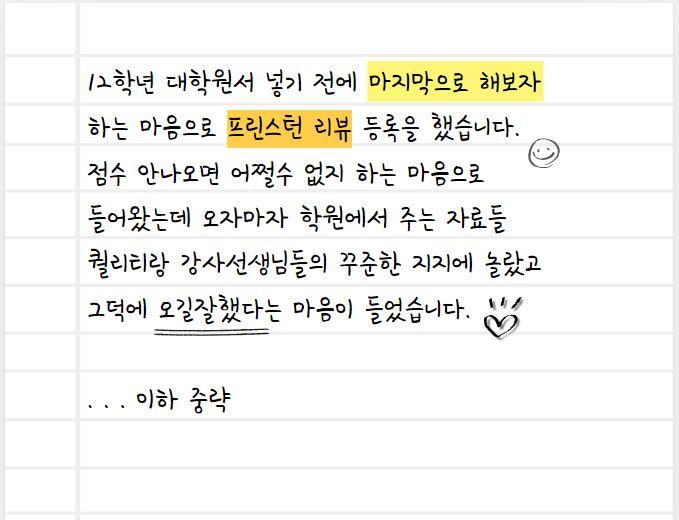 12학년 대학원서 넣기 전에 마지막으로 해보자
하는 마음으로 프린스턴 리뷰 등록을 했습니다.
점수 안나오면 어쩔수 없지 하는 마음으로
들어왔는데 오자마자 학원에서 주는 자료들
퀄리티랑 강사선생님들의 꾸준한 지지에 놀랐고
그덕에 오길잘했다는 마음이 들었습니다.
. . . 이하 중략